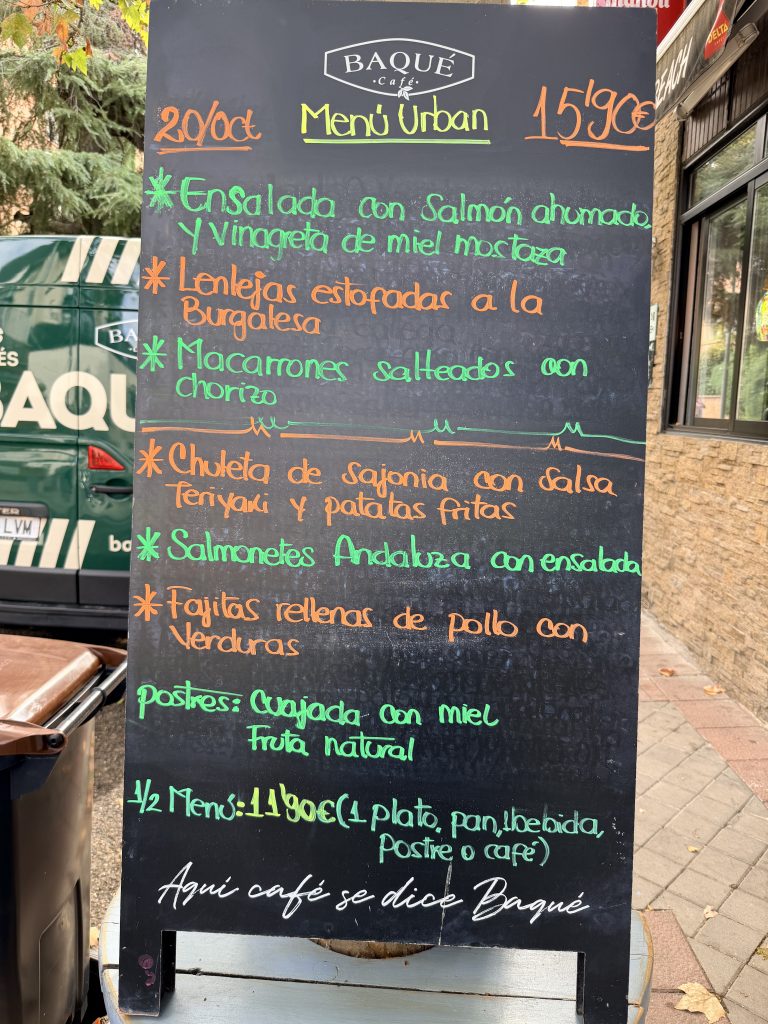 mahou
DELTA
BEACH
BAQUÉ
Café
20/oct
Menú Urban
15'90€
* Ensalada con Salmón ahumado,
y Vinagreta de miel mostaza
* Lentejas estofadas a la
Burgalesa
* Macarrones salteados con
chorizo
* Chuleta de sajonia con salsa
Teriyaki y patatas fritas
* Salmonetes Andaluza con ensalada
* Fajitas rellenas de pollo con
Verduras
postres: Cuajada con miel
Fruta natural
1/2 Menú: 11'90€ (1 plato, pan, 1 bebida,
Postre o café)
Aquí café se dice Baqué
BA
ÉS
BAQU
LVM
ba